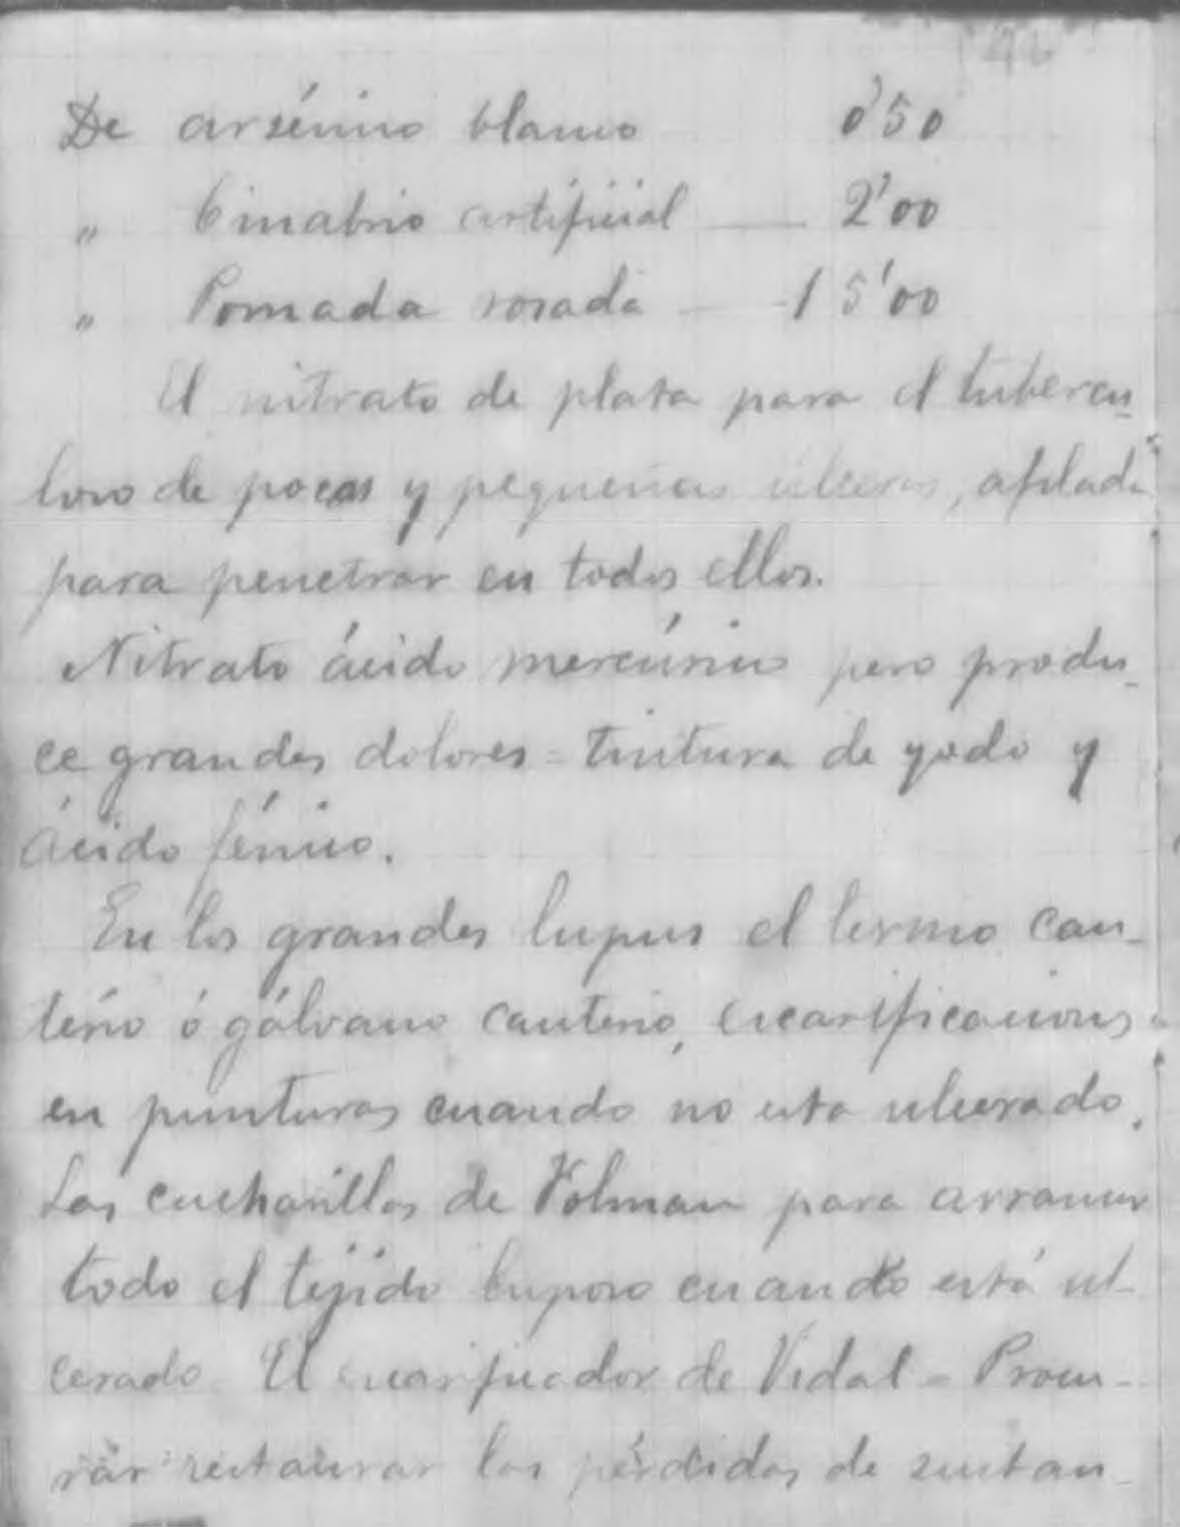 De arsénico blanco 0'50
" Cinabrio artificial — 2'00
" Pomada rosada — 15'00
El nitrato de plata para el tubercu-
loso de pocas y pequeñas úlceras, afilado
para penetrar en todos ellos.
Nitrato ácido mercúrico pero produ-
ce grandes dolores = tintura de yodo y
ácido fénico.
En los grandes lupus el termo cau-
terio ó gálvano cauterio, escarificaciones
en punturas cuando no esta ulcerado.
Las cucharillas de Volman para arrancar
todo el tejido luposo cuando está ul-
cerado. El escarificador de Vidal = Procu-
rar restaurar las pérdidas de sustan-